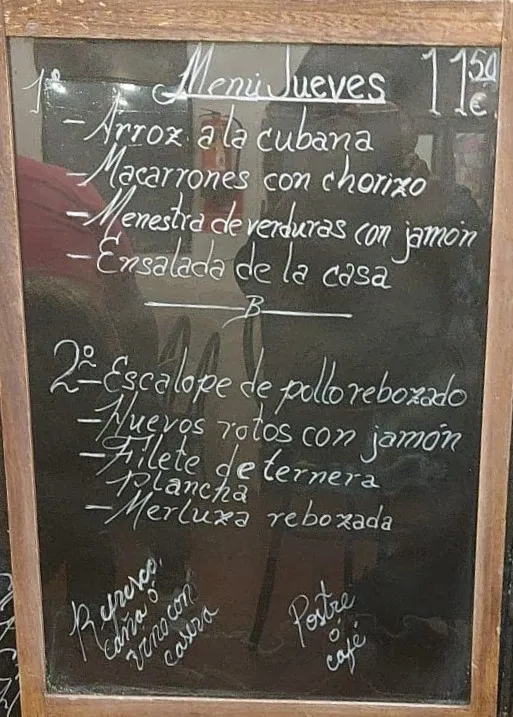 Menú Jueves 11'50 €
1º
- Arroz a la cubana
- Macarrones con chorizo
- Menestra de verduras con jamón
- Ensalada de la casa
B
2º - Escalope de pollo rebozado
- Huevos rotos con jamón
- Filete de ternera
Plancha
- Merluza rebozada
Refresco,
caña ó
vino con
casera
Postre
ó
café